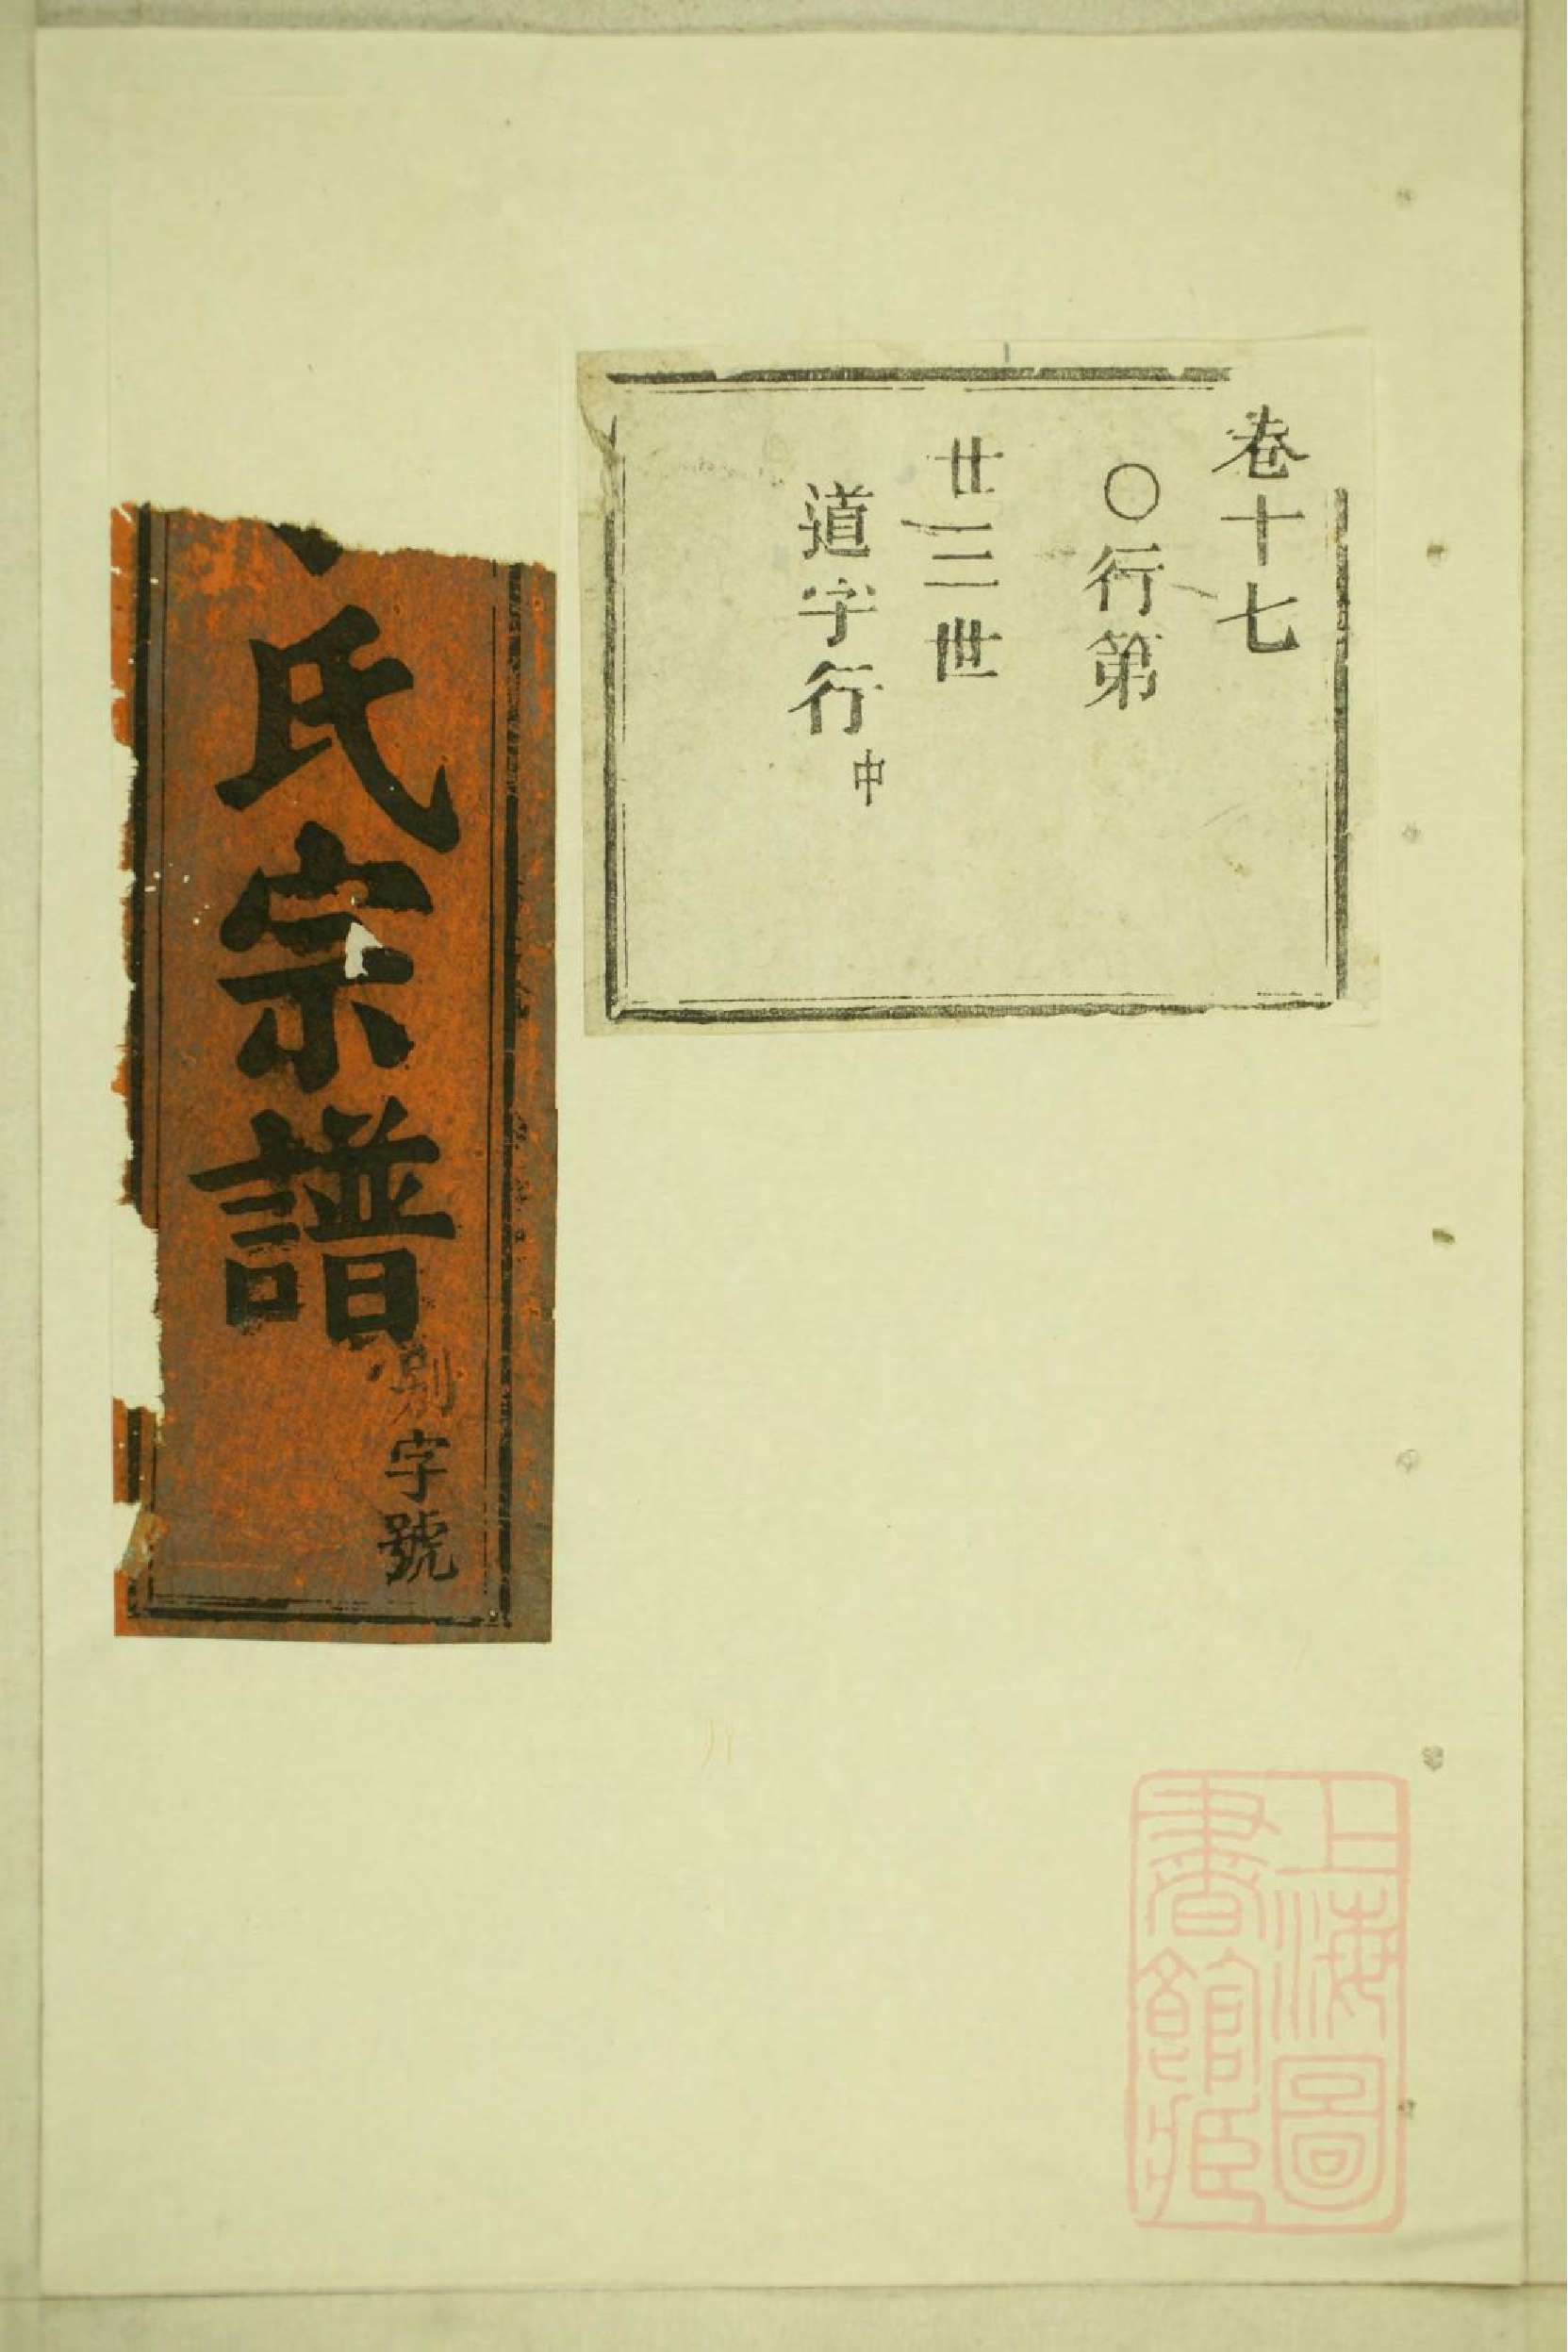 卷十七
〇行第
廿三世
道字行中
氏宗譜
別字號
上海圖
書館藏